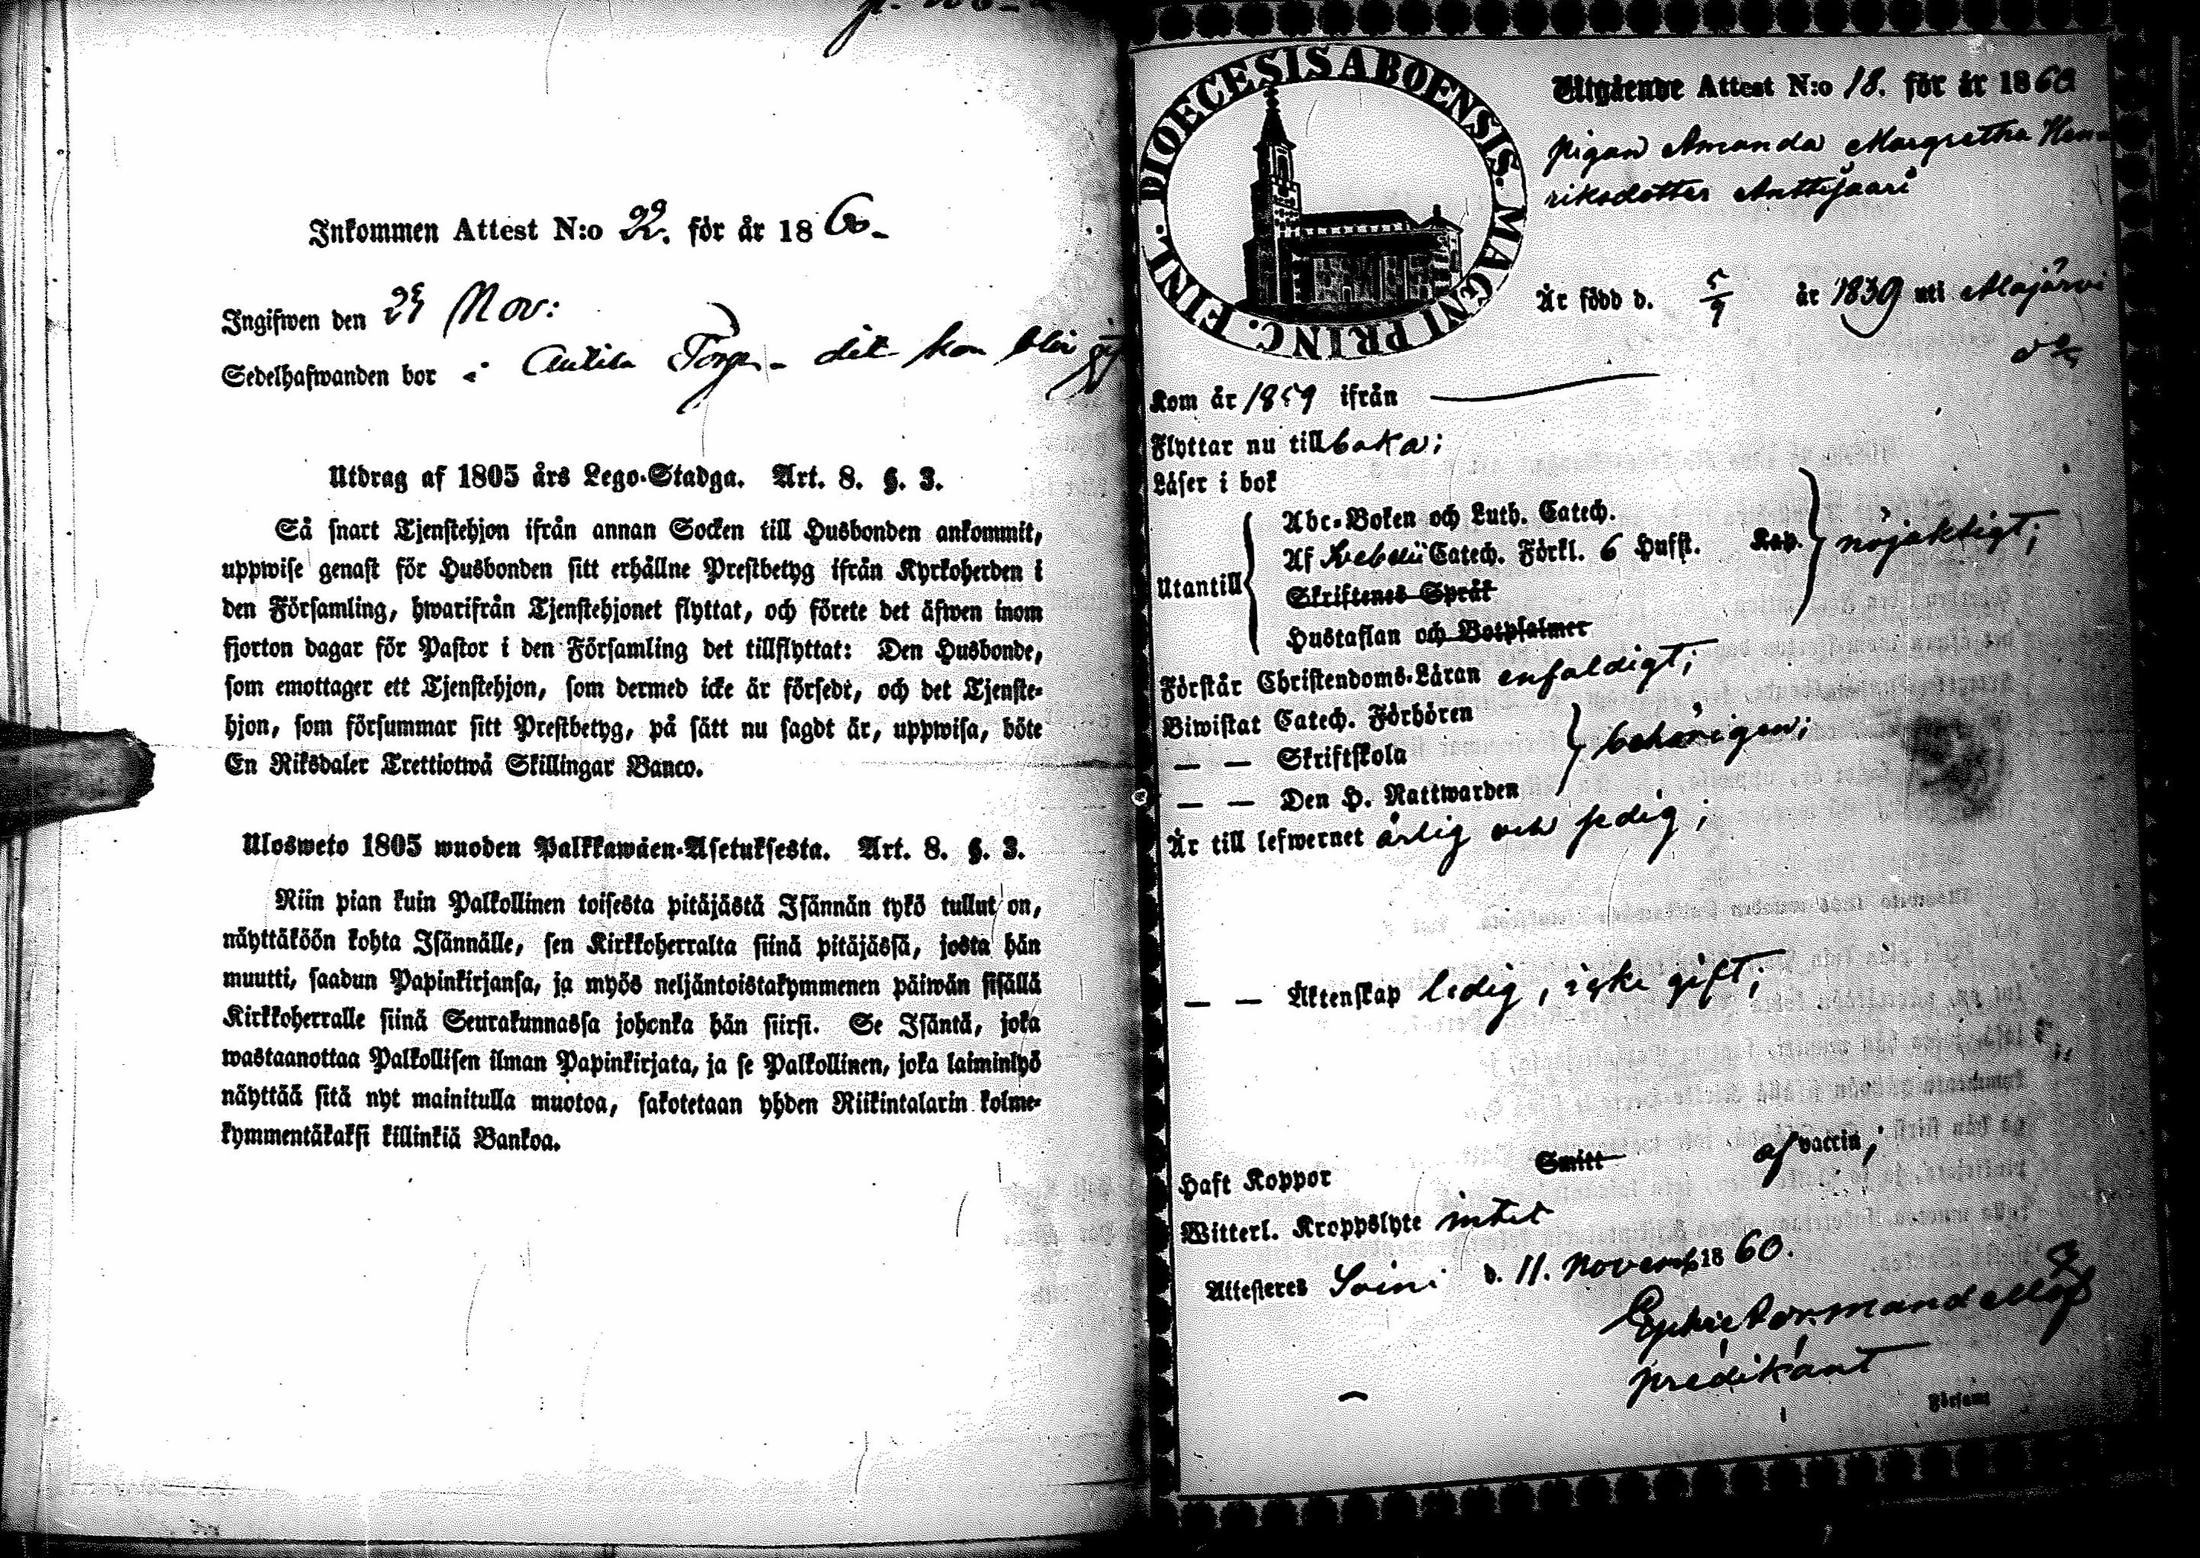 Inkommen Attest N:o 22. för år 1860
Ingifwen den 29 Nov:
Sedelhafwanden bor i Torp. dit hon blir gift
Utdrag af 1805 års Lego-Stadga. Art. 8. §. 3.
Så snart Tjenstehjon ifrån annan Socken till Husbonden ankommit,
uppwise genast för Husbonden sitt erhållne Prestbetyg ifrån Kyrkoherden i
den Församling, hwarifrån Tjenstehjonet flyttat, och förete det äfwen inom
fjorton dagar för Pastor i den Församling det tillflyttat: Den Husbonde,
som emottager ett Tjenstehjon, som dermed icke är försedt, och det Tjenste-
hjon, som försummar sitt Prestbetyg, på sätt nu sagdt är, uppwisa, böte
En Riksdaler Trettiotwå Skillingar Banco.
Ulosweto 1805 wuoden Palkkawäen-Asetuksesta. Art. 8. §. 3.
Niin pian kuin Palkollinen toisesta pitäjästä Isännän tykö tullut on,
näyttäköön kohta Isännälle, sen Kirkkoherralta siinä pitäjässä, josta hän
muutti, saadun Papinkirjansa, ja myös neljäntoistakymmenen päiwän sisällä
Kirkkoherralle siinä Seurakunnassa johonka hän siirsi. Se Isäntä, joka
wastaanottaa Palkollisen ilman Papinkirjata, ja se Palkollinen, joka laiminlyö
näyttää sitä nyt mainitulla muotoa, sakotetaan yhden Riikintalarin kolme-
kymmentäkaksi killinkiä Bankoa.
DIOECESIS ABOENSIS. MAGNI PRINC. FINL.
Utgående Attest N:o 18. för år 1860
pigan Amanda Margretha Hen
riksdotter Anttisaari
Är född d. 5/9 år 1839 uti Alajärvi
Kom år 1859 ifrån
Flyttar nu tillbaka;
Läser i bok
Abc-Boken och Luth. Catech.
Af Svebelii Catech. Förkl. 6 Hufst. Kap. nöjaktigt;
Utantill
Skriftenes Språk
Hustaflan och Botpsalmer
Förstår Christendoms-Läran enfaldigt;
Biwistat Catech. Förhören
— — Skriftskola behörigen;
— — Den H. Nattwarden
Är till lefwernet ärlig och sedig;
— — Äktenskap ledig, icke gift;
Haft Koppor Smitt af vaccin;
Witterl. Kroppslyte intet
Attesteres Soini d. 11. Novemb 1860.
predikant
Församl